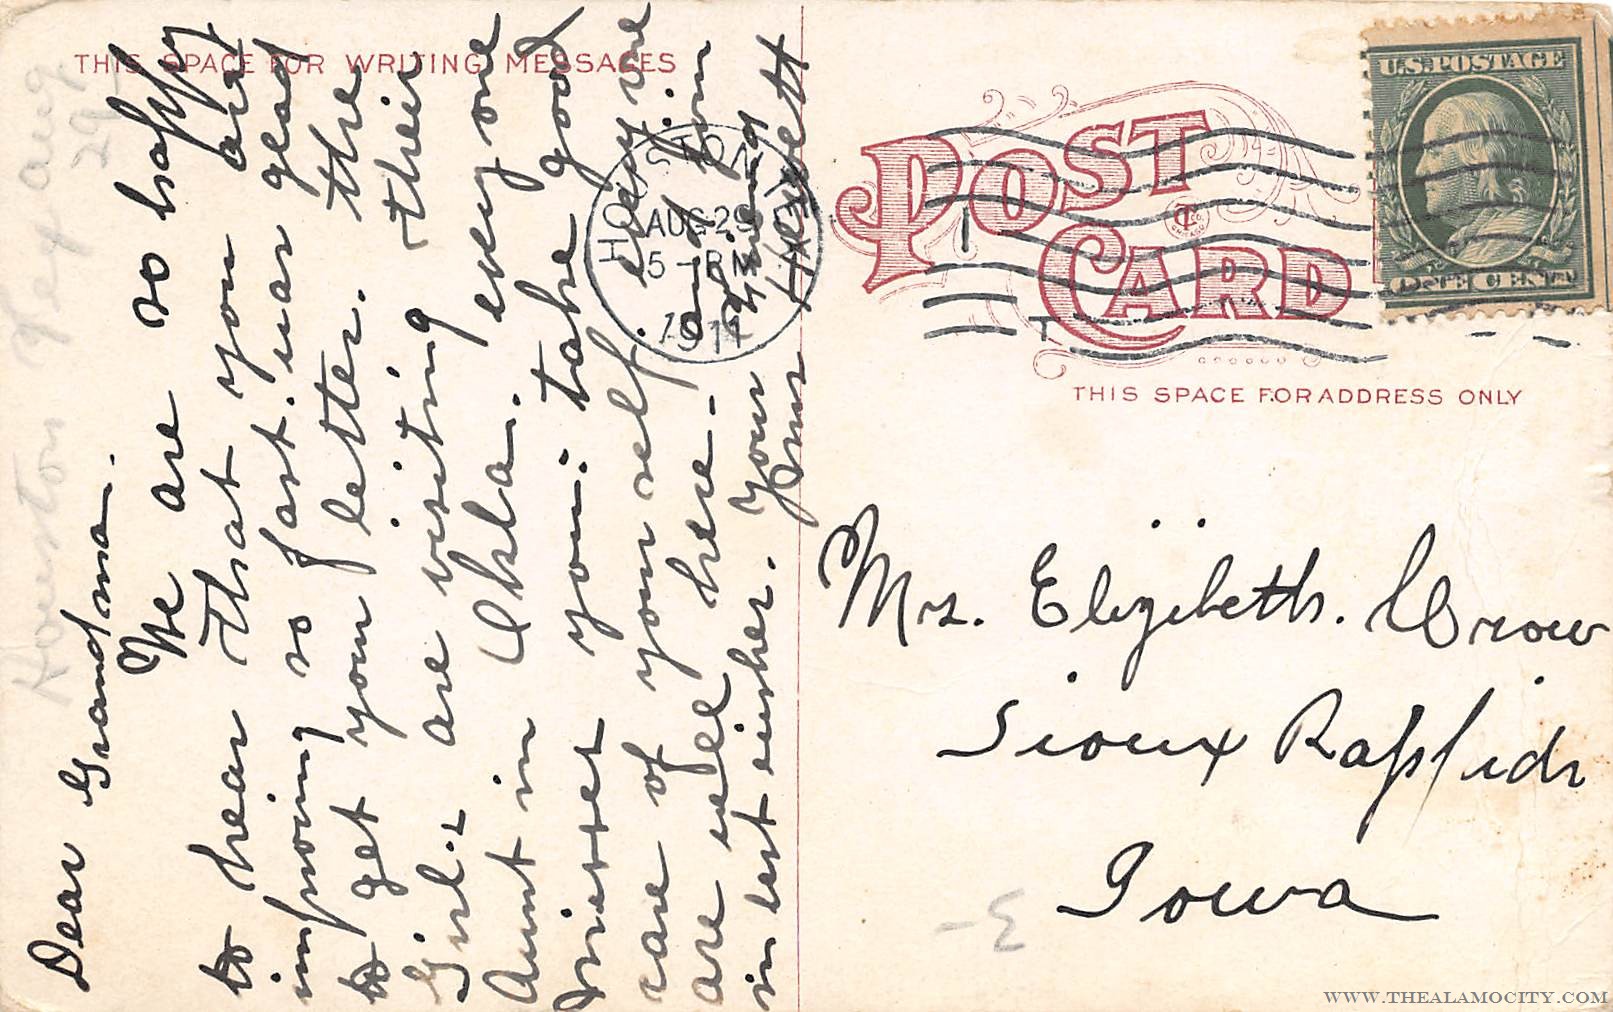 THIS SPACE FOR WRITING MESSAGES
Houston Tex aug
29
Dear Grandma.
We are so happy
to hear that you are
improving so fast. was glad
to get your letter. the
Girls are visiting their
Aunt in Okla. every one
misses you: take good
care of your self.
are well here. from
in best wishes. Your
AUG 29
5 - PM
1911
POST
CARD
U.S. POSTAGE
ONE CENT
THIS SPACE FOR ADDRESS ONLY
Mrs. Elizibeth. Crow
Sioux Rapids
Iowa
WWW.THEALAMOCITY.COM